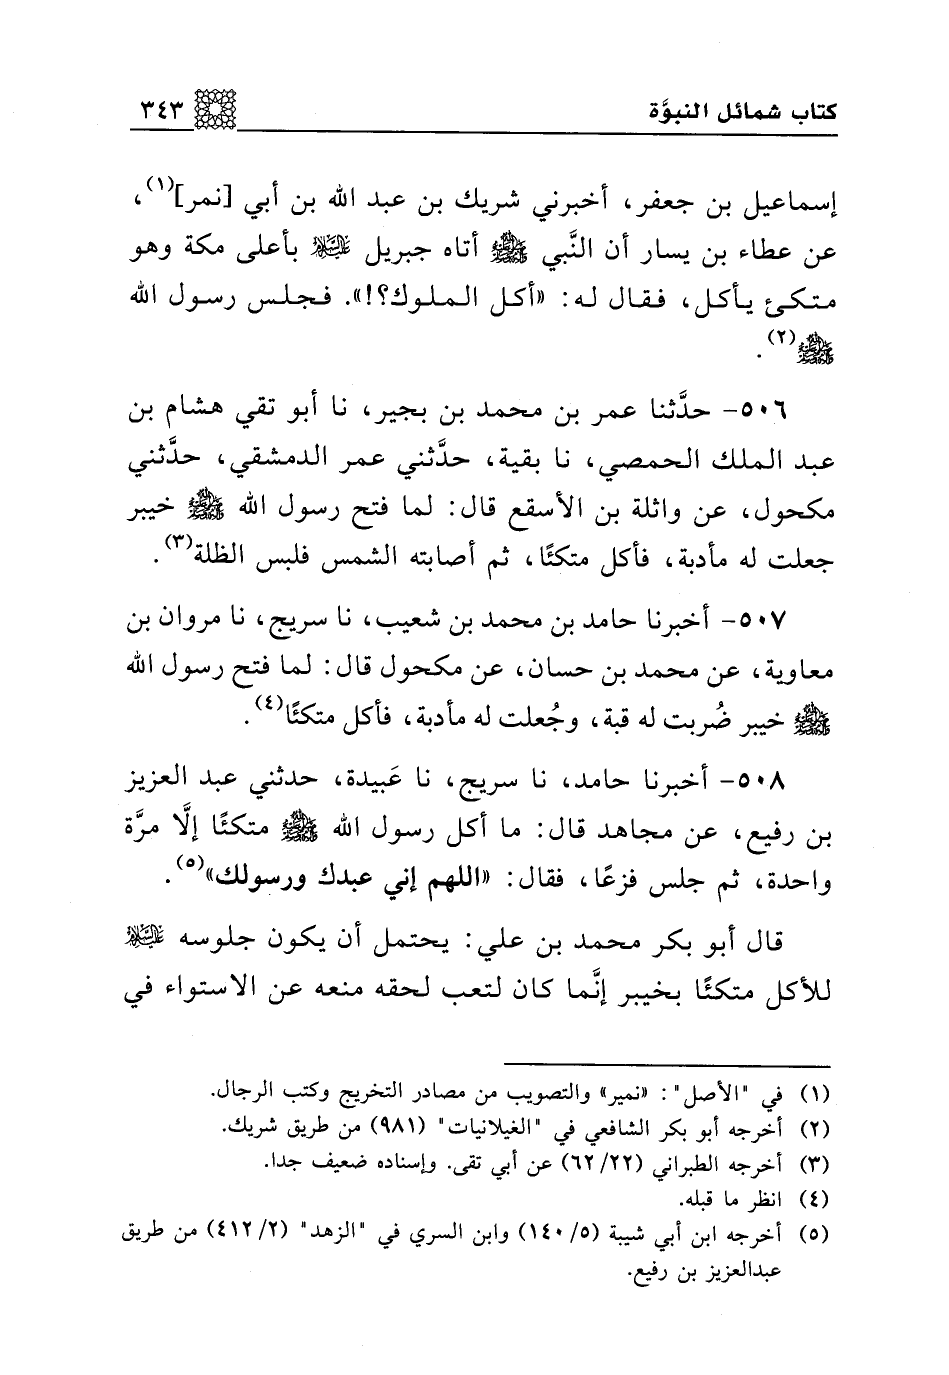 كتاب شمائل النبوَّة ٣٤٣
إسماعيل بن جعفر، أخبرني شريك بن عبد الله بن أبي [نمر](١)،
عن عطاء بن يسار أن النَّبي ﷺ أتاه جبريل عليه السلام بأعلى مكة وهو
متكئ يأكل، فقال له: «أكل الملوك؟!». فجلس رسول الله
ﷺ(٢).
٥٠٦- حدَّثنا عمر بن محمد بن بجير، نا أبو تقي هشام بن
عبد الملك الحمصي، نا بقية، حدَّثني عمر الدمشقي، حدَّثني
مكحول، عن واثلة بن الأسقع قال: لما فتح رسول الله ﷺ خيبر
جعلت له مأدبة، فأكل متكئًا، ثم أصابته الشمس فلبس الظلة(٣).
٥٠٧- أخبرنا حامد بن محمد بن شعيب، نا سريج، نا مروان بن
معاوية، عن محمد بن حسان، عن مكحول قال: لما فتح رسول الله
ﷺ خيبر ضُربت له قبة، وجُعلت له مأدبة، فأكل متكئًا(٤).
٥٠٨- أخبرنا حامد، نا سريج، نا عَبيدة، حدثني عبد العزيز
بن رفيع، عن مجاهد قال: ما أكل رسول الله ﷺ متكئًا إلَّا مرَّة
واحدة، ثم جلس فزعًا، فقال: «اللهم إني عبدك ورسولك»(٥).
قال أبو بكر محمد بن علي: يحتمل أن يكون جلوسه عليه السلام
للأكل متكئًا بخيبر إنَّما كان لتعب لحقه منعه عن الاستواء في
(١) في "الأصل": «نمير» والتصويب من مصادر التخريج وكتب الرجال.
(٢) أخرجه أبو بكر الشافعي في "الغيلانيات" (٩٨١) من طريق شريك.
(٣) أخرجه الطبراني (٦٢/٢٢) عن أبي تقى. وإسناده ضعيف جدا.
(٤) انظر ما قبله.
(٥) أخرجه ابن أبي شيبة (١٤٠/٥) وابن السري في "الزهد" (٤١٢/٢) من طريق
عبدالعزيز بن رفيع.